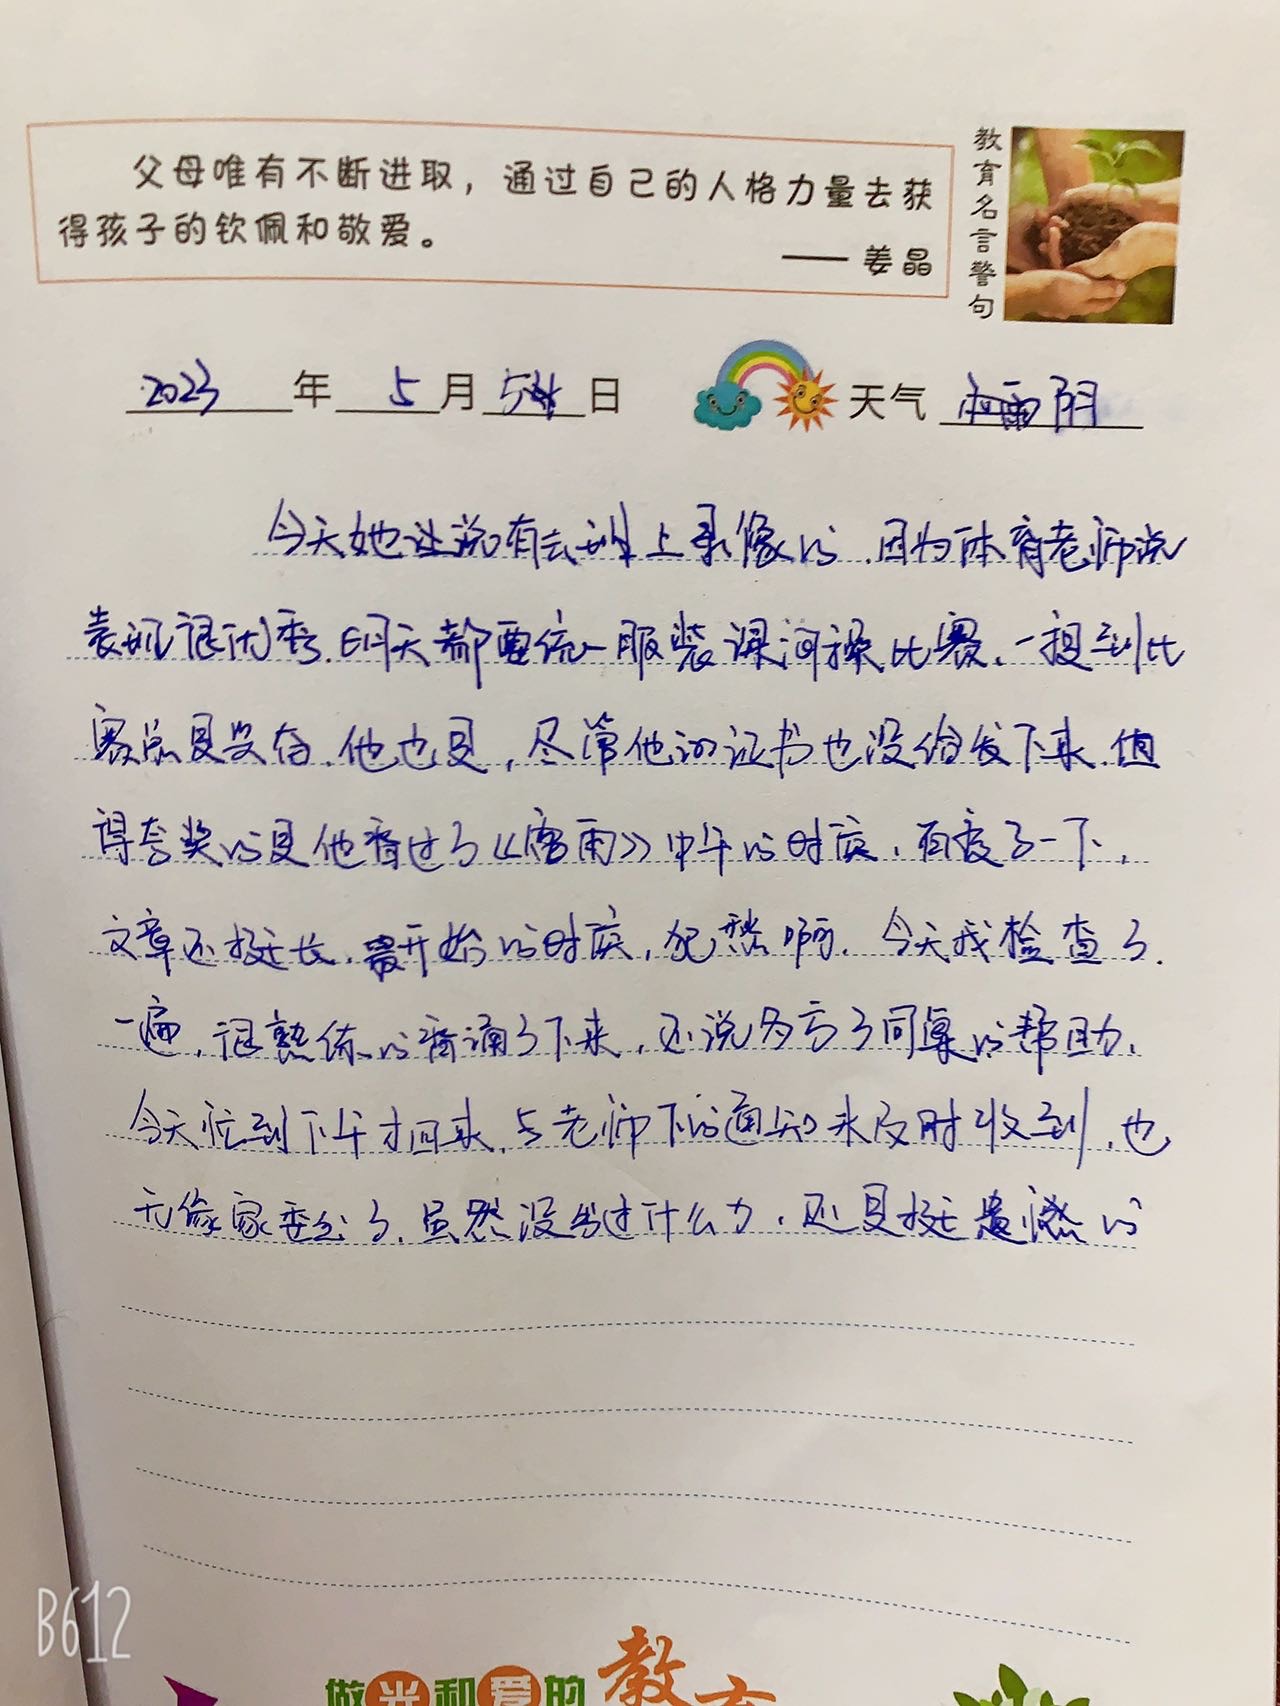 父母唯有不断进取，通过自己的人格力量去获
得孩子的钦佩和敬爱。
—— 姜晶
教育名言警句
2023年5月5日 天气 阴
今天她说有去上录像的.因为体育老师说
表现很优秀.明天都要统一服装课间操比赛.一提到比
赛总是兴奋.他也是,尽管他的证书也没给发下来.值
得夸奖的是他背过了《雷雨》中午的时候,百度了一下,
文章还挺长.最开始的时候,犯愁啊.今天我检查了
一遍,很熟练的背诵了下来,还说多亏了同桌的帮助.
今天忙到下午才回来.老师下的通知未及时收到.也
无缘家委会了.虽然没出过什么力,还是挺遗憾的
B612
做光和爱的教育